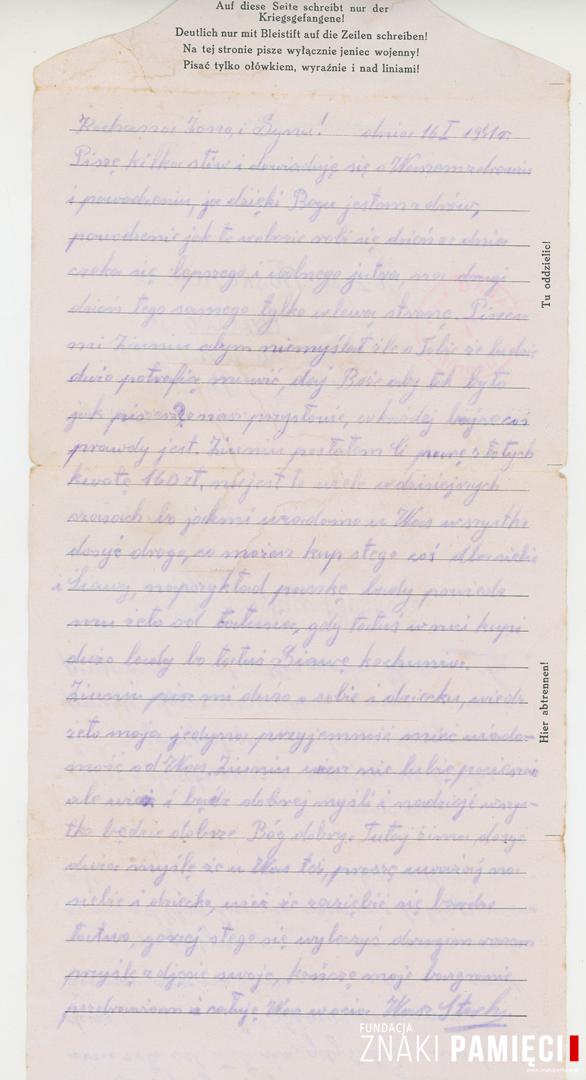 Auf diese Seite schreibt nur der
Kriegsgefangene!
Deutlich nur mit Bleistift auf die Zeilen schreiben!
Na tej stronie pisze wyłącznie jeniec wojenny!
Pisać tylko ołówkiem, wyraźnie i nad liniami!
Kochana Żono i Synu! dnia 16 I 1941 r.
Piszę kilka słów i dowiaduję się o Waszem zdrowiu
i powodzeniu, ja dzięki Bogu jestem zdrów,
powodzenie jak to w obozie robi się dzień za dnia
czeka się lepszego i wolnego jutra, na drugi
dzień tego samego tylko w lewą stronę. Piszesz
mi Ziuniu abym niemyślał źle o Tobie że będzie
dużo potrafię mówić, daj Boże aby tak było
jak piszesz nasz przysłowie, w każdej bajce coś
prawdy jest. Ziuniu posłałem Ci parę złotych
kwotę 160 zł, niejest to wiele w dzisiejszych
czasach bo jakmi wiadomo u Was wszystko
dosyć drogo, co możesz kup z tego coś dla siebie
i Sławy, naprzykład paczkę
mu że to od tatusia, gdy tatuś wróci kupi
dużo bo tatuś Sławę kochuniu.
Ziuniu pisz mi dużo o sobie i dziecku, wiedz
że to moja jedyna przyjemność mieć wiado-
mość od Was, Ziuniu nie lubię pocieszać
ale i bądź dobrej myśli i nadzieji wszys-
tko będzie dobrze Bóg dobry. Tutaj zima dosyć
duża myślę że u Was też, proszę uważaj na
siebie i dziecko, wiesz że zaziębić się bardzo
łatwo, gorzej z tego się wyleczyć drugim razem
przyślę zdjęcie swoje, kończę moje bazgranie
pozdrawiam i całuję Was Wasz Stach
Tu oddzielić!
Hier abtrennen!
FUNDACJA
ZNAKI PAMIĘCI